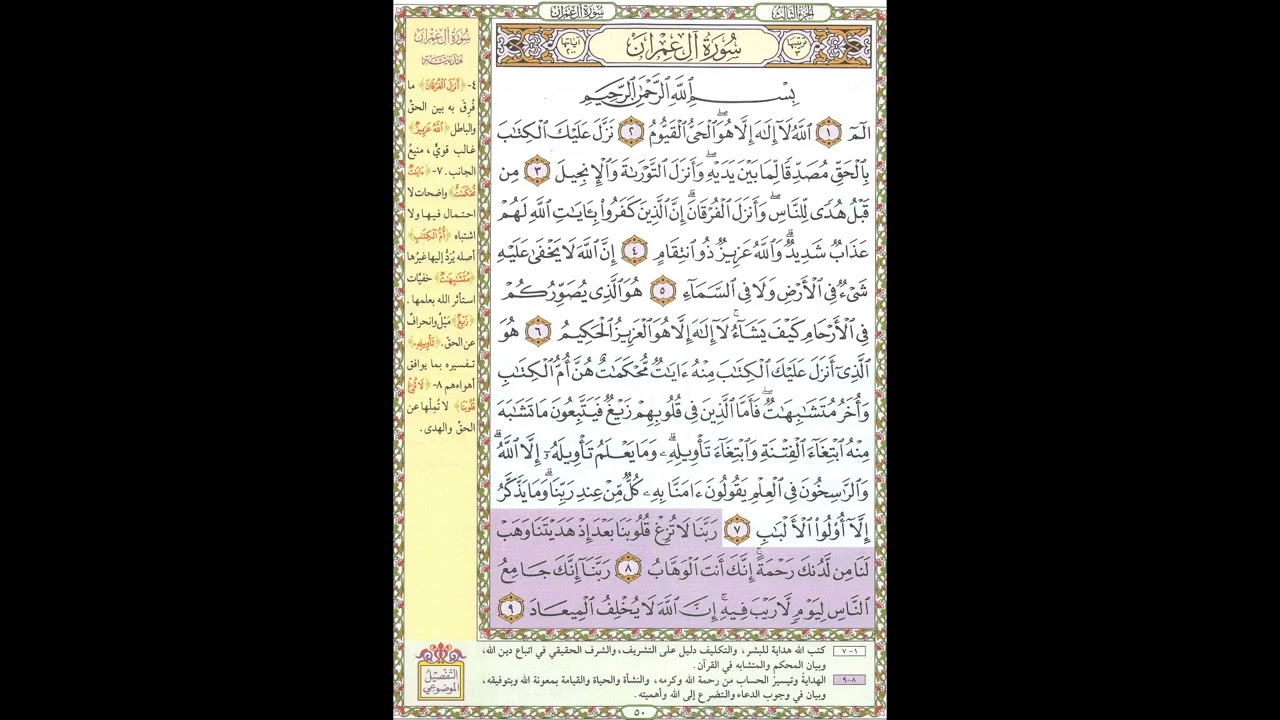 الجزء الثالث
سورة آل عمران
ترتيبها ٣
سُورَةُ آلِ عِمْرَانَ
آياتها ٢٠٠
بِسْمِ اللَّهِ الرَّحْمَٰنِ الرَّحِيمِ
الٓمٓ ١ اللَّهُ لَآ إِلَٰهَ إِلَّا هُوَ ۖ الْحَيُّ الْقَيُّومُ ٢ نَزَّلَ عَلَيْكَ الْكِتَٰبَ
بِالْحَقِّ مُصَدِّقًا لِّمَا بَيْنَ يَدَيْهِ ۖ وَأَنزَلَ التَّوْرَىٰةَ وَالْإِنجِيلَ ٣ مِن
قَبْلُ هُدًى لِّلنَّاسِ ۖ وَأَنزَلَ الْفُرْقَانَ ۗ إِنَّ الَّذِينَ كَفَرُوا۟ بِـَٔايَٰتِ اللَّهِ لَهُمْ
عَذَابٌ شَدِيدٌ ۗ وَاللَّهُ عَزِيزٌ ذُو انتِقَامٍ ٤ إِنَّ اللَّهَ لَا يَخْفَىٰ عَلَيْهِ
شَىْءٌ فِى الْأَرْضِ وَلَا فِى السَّمَآءِ ٥ هُوَ الَّذِى يُصَوِّرُكُمْ
فِى الْأَرْحَامِ كَيْفَ يَشَآءُ ۚ لَآ إِلَٰهَ إِلَّا هُوَ الْعَزِيزُ الْحَكِيمُ ٦ هُوَ
الَّذِىٓ أَنزَلَ عَلَيْكَ الْكِتَٰبَ مِنْهُ ءَايَٰتٌ مُّحْكَمَٰتٌ هُنَّ أُمُّ الْكِتَٰبِ
وَأُخَرُ مُتَشَٰبِهَٰتٌ ۖ فَأَمَّا الَّذِينَ فِى قُلُوبِهِمْ زَيْغٌ فَيَتَّبِعُونَ مَا تَشَٰبَهَ
مِنْهُ ابْتِغَآءَ الْفِتْنَةِ وَابْتِغَآءَ تَأْوِيلِهِۦ ۗ وَمَا يَعْلَمُ تَأْوِيلَهُۥٓ إِلَّا اللَّهُ ۗ
وَالرَّٰسِخُونَ فِى الْعِلْمِ يَقُولُونَ ءَامَنَّا بِهِۦ كُلٌّ مِّنْ عِندِ رَبِّنَا ۗ وَمَا يَذَّكَّرُ
إِلَّآ أُو۟لُوا۟ الْأَلْبَٰبِ ٧ رَبَّنَا لَا تُزِغْ قُلُوبَنَا بَعْدَ إِذْ هَدَيْتَنَا وَهَبْ
لَنَا مِن لَّدُنكَ رَحْمَةً ۚ إِنَّكَ أَنتَ الْوَهَّابُ ٨ رَبَّنَآ إِنَّكَ جَامِعُ
النَّاسِ لِيَوْمٍ لَّا رَيْبَ فِيهِ ۚ إِنَّ اللَّهَ لَا يُخْلِفُ الْمِيعَادَ ٩
سُورَةُ آلِ عِمْرَانَ
مَدَنِيَّة
٤- ﴿أَنزَلَ الْفُرْقَانَ﴾ ما
فُرِقَ به بين الحقِّ
والباطل ﴿اللَّهُ عَزِيزٌ﴾
غالب قويٌّ، منيعُ
الجانب. ٧- ﴿ءَايَٰتٌ
مُّحْكَمَٰتٌ﴾ واضحات لا
احتمال فيها ولا
اشتباه ﴿أُمُّ الْكِتَٰبِ﴾
أصله يُرَدُّ إليها غيرُها
﴿مُتَشَٰبِهَٰتٌ﴾ خفيَّات
استأثر الله بعلمها.
﴿زَيْغٌ﴾ مَيْلٌ وانحرافٌ
عن الحقِّ. ﴿تَأْوِيلِهِۦ﴾
تفسيره بما يوافق
أهواءهم ٨- ﴿لَا تُزِغْ
قُلُوبَنَا﴾ لا تُمِلْها عن
الحقِّ والهدى.
التفصيل
الموضوعي
١-٧ كتب الله هداية للبشر، والتكليف دليل على التشريف، والشرف الحقيقي في اتباع دين الله،
وبيان المحكم والمتشابه في القرآن.
٨-٩ الهداية وتيسير الحساب من رحمة الله وكرمه، والنشأة والحياة والقيامة بمعونة الله وبتوفيقه،
وبيان في وجوب الدعاء والتضرع إلى الله وأهميته.
٥٠